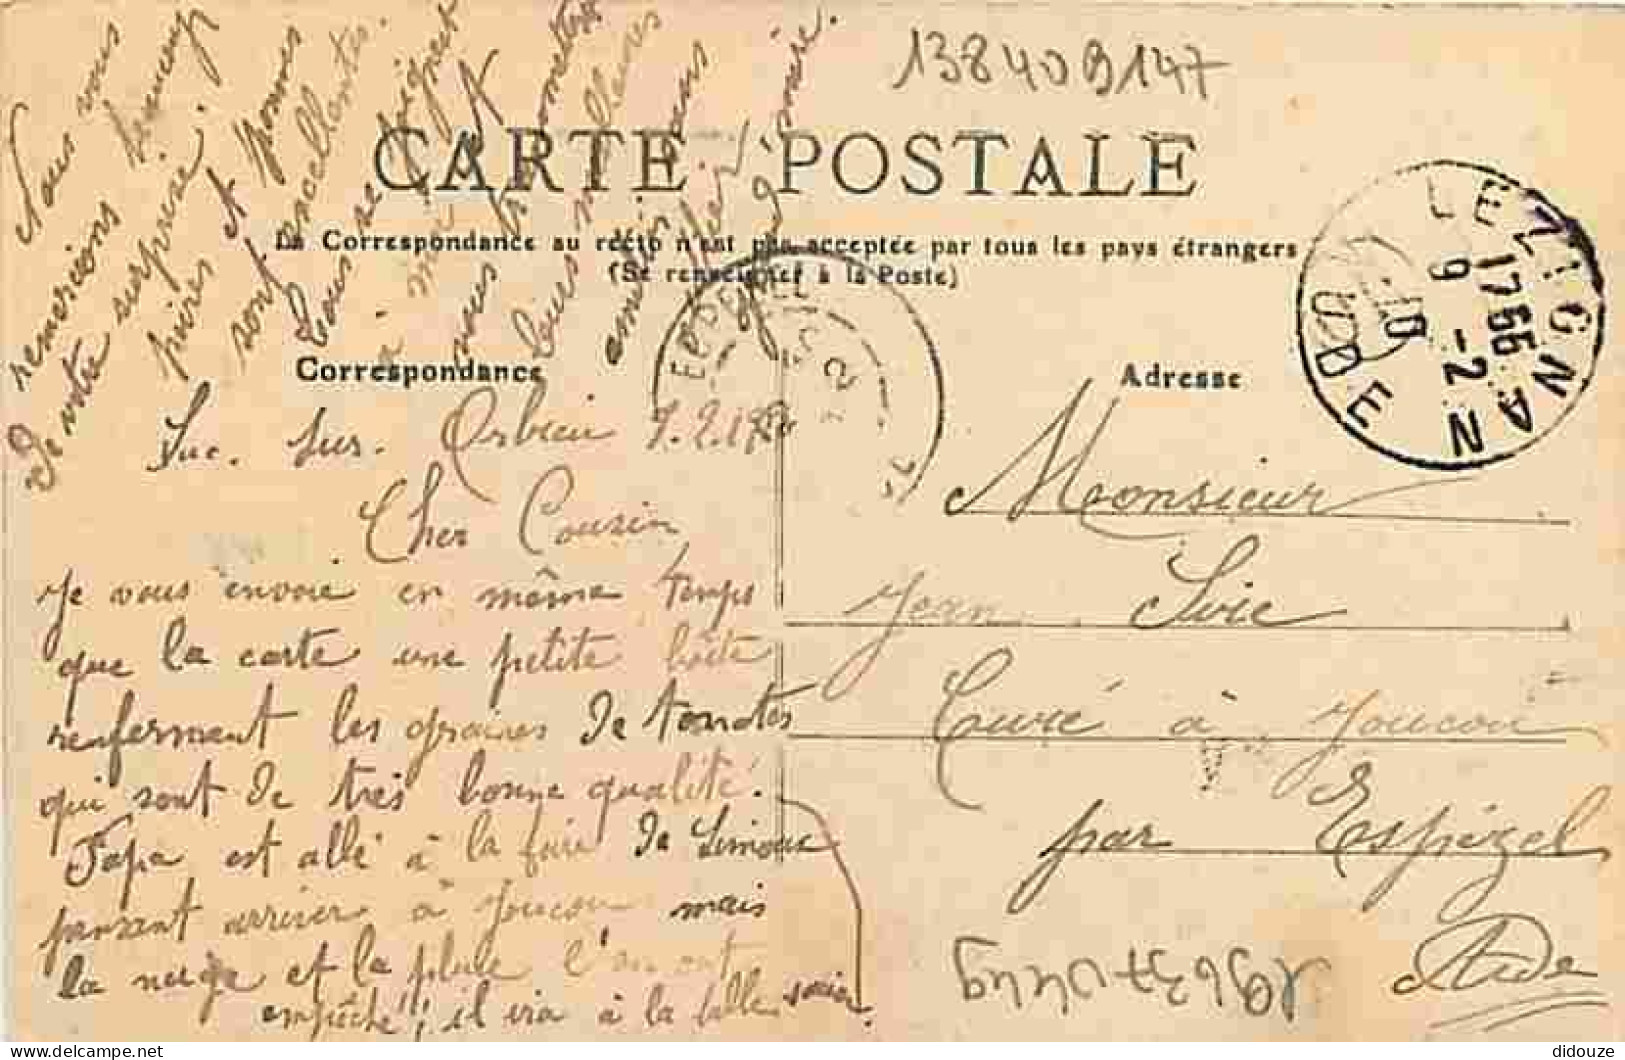 13840B147
CARTE POSTALE
La Correspondance au recto n'est pas acceptée par tous les pays étrangers
(Se renseigner à la Poste)
Correspondance
Adresse
LEZIGNAN
1755
9 -2
10
AUDE
Luc. sur. Orbieu 7.2.19
Cher Cousin
Je vous envoie en même temps
que la carte une petite boite
renfermant les graines de tomates
qui sont de très bonne qualité.
Papa est allé à la foire de Limoux
pensant arriver à Joucou mais
la neige et la pluie l'en ont
empêché!; il ira à la
Nous vous
remercions beaucoup
de votre surprise;
poires et pommes
sont excellentes.
Tous se joignent
à moi et
vous
leurs meilleures
amitiés
Monsieur
Jean Sire
Curé à Joucou
par Espézel
Aude
didouze @ delcampe.net